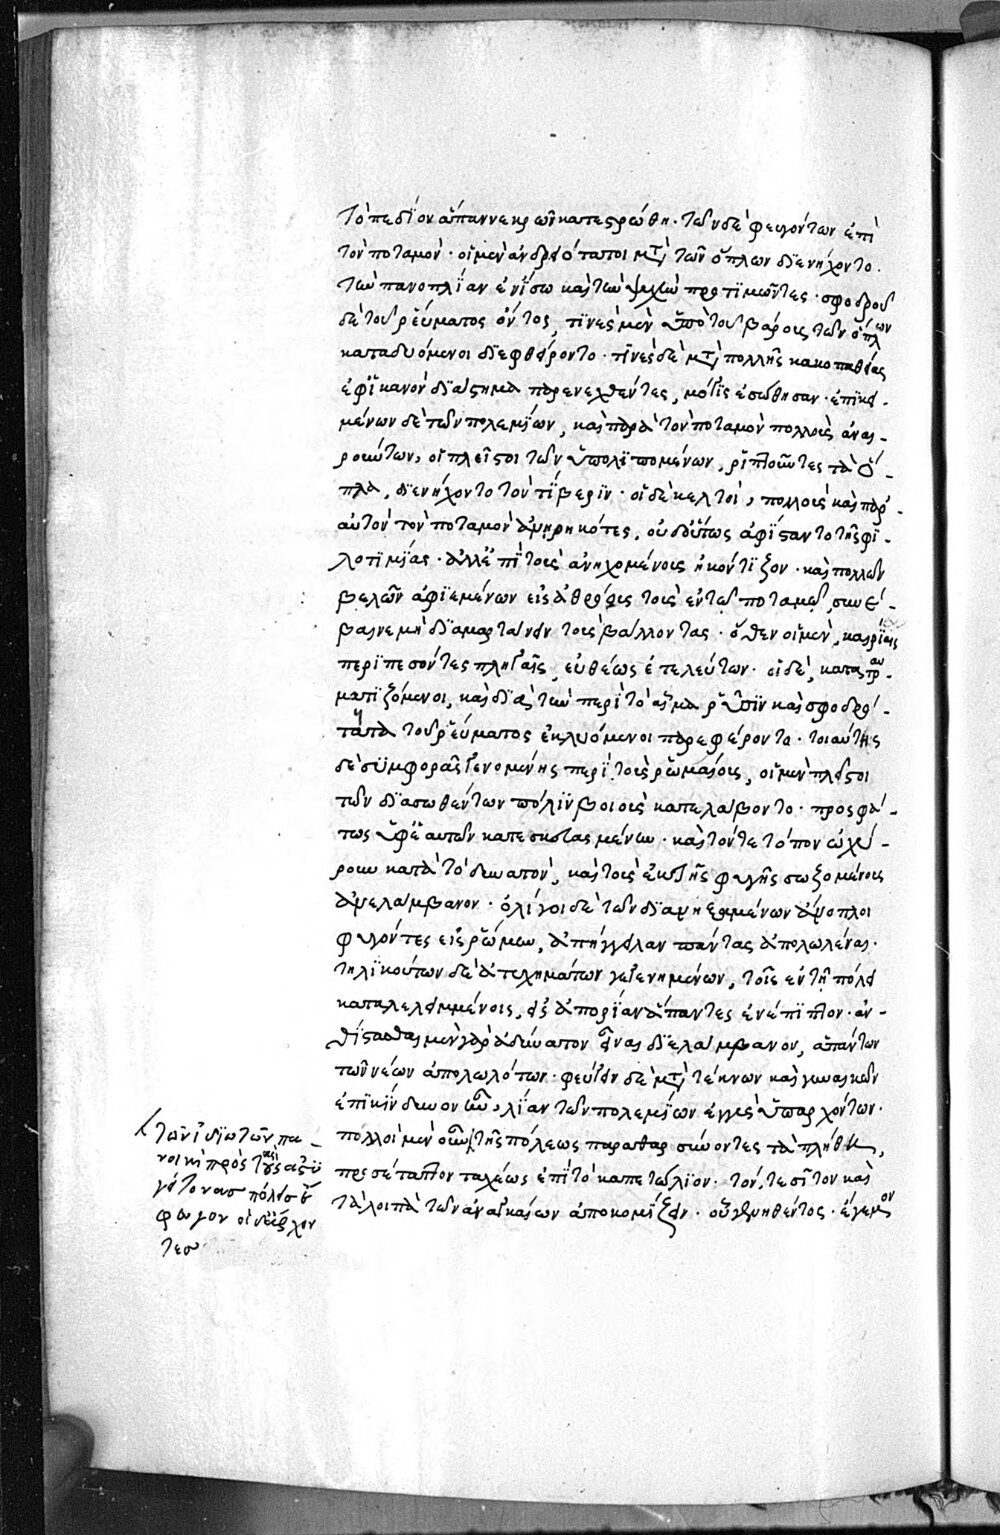 τὸ πεδίον ἅπαν νεκρῶν κατεστρώθη· τῶν δὲ φευγόντων ἐπὶ
τὸν ποταμὸν· οἱ μὲν ἀνδρειότατοι μετὰ τῶν ὅπλων διενήχοντο·
τὴν πανοπλίαν ἐν ἴσω καὶ τὴν ψυχὴν προτιμῶντες· σφοδροῦ
δὲ τοῦ ῥεύματος ὄντος, τινὲς μὲν ὑπὸ τοῦ βάρους τῶν ὅπλων
καταδυόμενοι διεφθείροντο· τινὲς δὲ μετὰ πολλῆς κακοπαθείας
ἐφ' ἱκανὸν διάστημα παρενεχθέντες, μόλις ἐσώθησαν· ἐπικει-
μένων δὲ τῶν πολεμίων, καὶ παρὰ τὸν ποταμὸν πολλοὺς ἀναι-
ρούντων, οἱ πλεῖστοι τῶν ὑπολειπομένων, ῥιπτοῦντες τὰ ὅ-
πλα, διενήχοντο τὸν τίβεριν· οἱ δὲ κελτοὶ, πολλοὺς καὶ παρ'
αὐτὸν τὸν ποταμὸν ἀνῃρηκότες, οὐδ' οὕτως ἀφίσταντο τῆς φι-
λοτιμίας· ἀλλ' ἐπὶ τοὺς ἀνηχομένους ἠκόντιζον· καὶ πολλῶν
βελῶν ἀφιεμένων εἰς ἀθρόους τοὺς ἐν τῶ ποταμῶ, συνέ-
βαινε μὴ διαμαρτάνειν τοὺς βάλλοντας· ὅθεν οἱ μὲν, καιρίαις
περιπεσόντες πληγαῖς, εὐθέως ἐτελεύτων· οἱ δὲ, κατατραυ-
ματιζόμενοι, καὶ διὰ τὴν περὶ τὸ αἷμα ῥύσιν καὶ σφοδρό-
τητα τοῦ ῥεύματος ἐκλυόμενοι παρεφέροντο· τοιαύτης
δὲ συμφορᾶς γενομένης περὶ τοὺς ῥωμαίους, οἱ μὲν πλεῖστοι
τῶν διασωθέντων πόλιν βοιοὺς κατελάβοντο· προσφά-
τως ὑφ' ἑαυτῶν κατεσκαμμένην· καὶ τόν τε τόπον ὠχύ-
ρουν κατὰ τὸ δυνατὸν, καὶ τοὺς ἐκ τῆς φυγῆς σωζομένους
ἀνελάμβανον· ὀλίγοι δὲ τῶν διανηξαμένων ἄνοπλοι
φυγόντες εἰς ῥώμην, ἀπήγγειλαν πάντας ἀπολωλέναι·
τηλικούτων δὲ ἀτυχημάτων γεγενημένων, τοῖς ἐν τῆ πόλει
καταλελειμμένοις, εἰς ἀπορίαν ἅπαντες ἐνέπιπτον· ἀν-
θίστασθαι μὲν γὰρ ἀδύνατον εἶναι διελάμβανον, ἁπάντων
τῶν νέων ἀπολωλότων· φεύγειν δὲ μετὰ τέκνων καὶ γυναικῶν
ἐπικίνδυνον ἦν, λίαν τῶν πολεμίων ἐγγὺς ὑπαρχόντων·
πολλοὶ μὲν οὖν
τῆς πόλεως παραθαρσύνοντες τὰ πλήθη,
προσέταττον ταχέως ἐπὶ τὸ καπετώλιον· τόν, τε σῖτον καὶ
τὰ λοιπὰ τῶν ἀναγκαίων ἀποκομίζειν· οὗ γενηθέντος· ἔγεμον
τῶν ἰδιωτῶν πα-
νοικὶ πρὸς τὰς ἀστυ
γείτονας πόλεις ἔ
φυγον οἱ δ' ἄρχον
τες